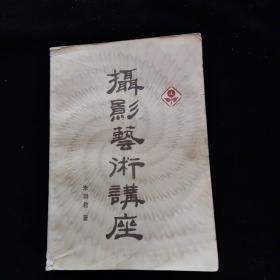 攝影藝術講座
朱羽君 著